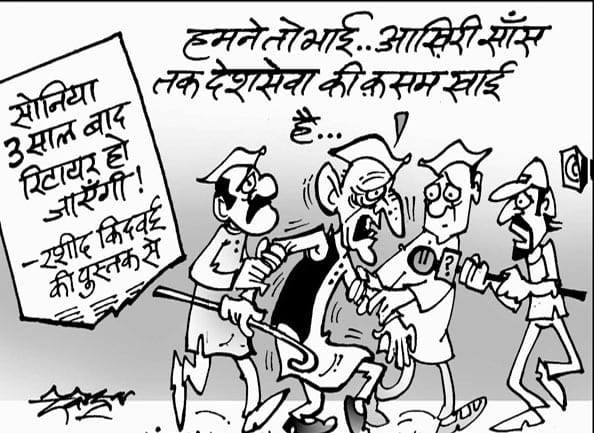 हमने तो भाई.. आख़िरी साँस
तक देशसेवा की क़सम खाई
है...
सोनिया
3 साल बाद
रिटायर हो
जाएँगी!
–रशीद किदवई
की पुस्तक से
?